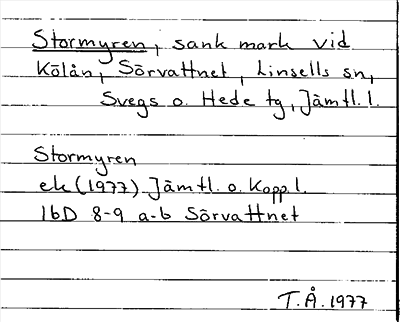 Stormyren, sank mark vid
Kölån, Sörvattnet, Linsells sn,
Svegs o. Hede tg, Jämtl. l.
Stormyren
ek (1977) Jämtl. o. Kopp. l.
16D 8-9 a-b Sörvattnet
T.Å. 1977